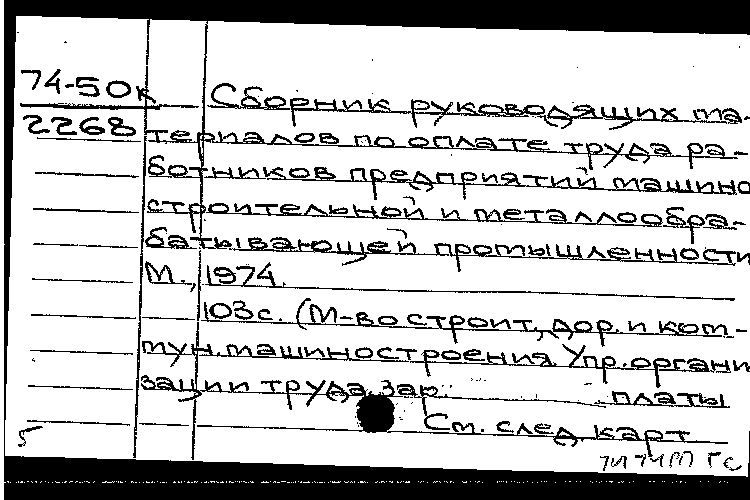 74-50к
2268
Сборник руководящих ма-
териалов по оплате труда ра-
ботников предприятий машино
строительной и металлообра-
батывающей промышленности
М., 1974.
103с. (М-во строит., дор. и ком-
мун. машиностроения. Упр. органи
зации труда, зар. платы
См. след. карт
5